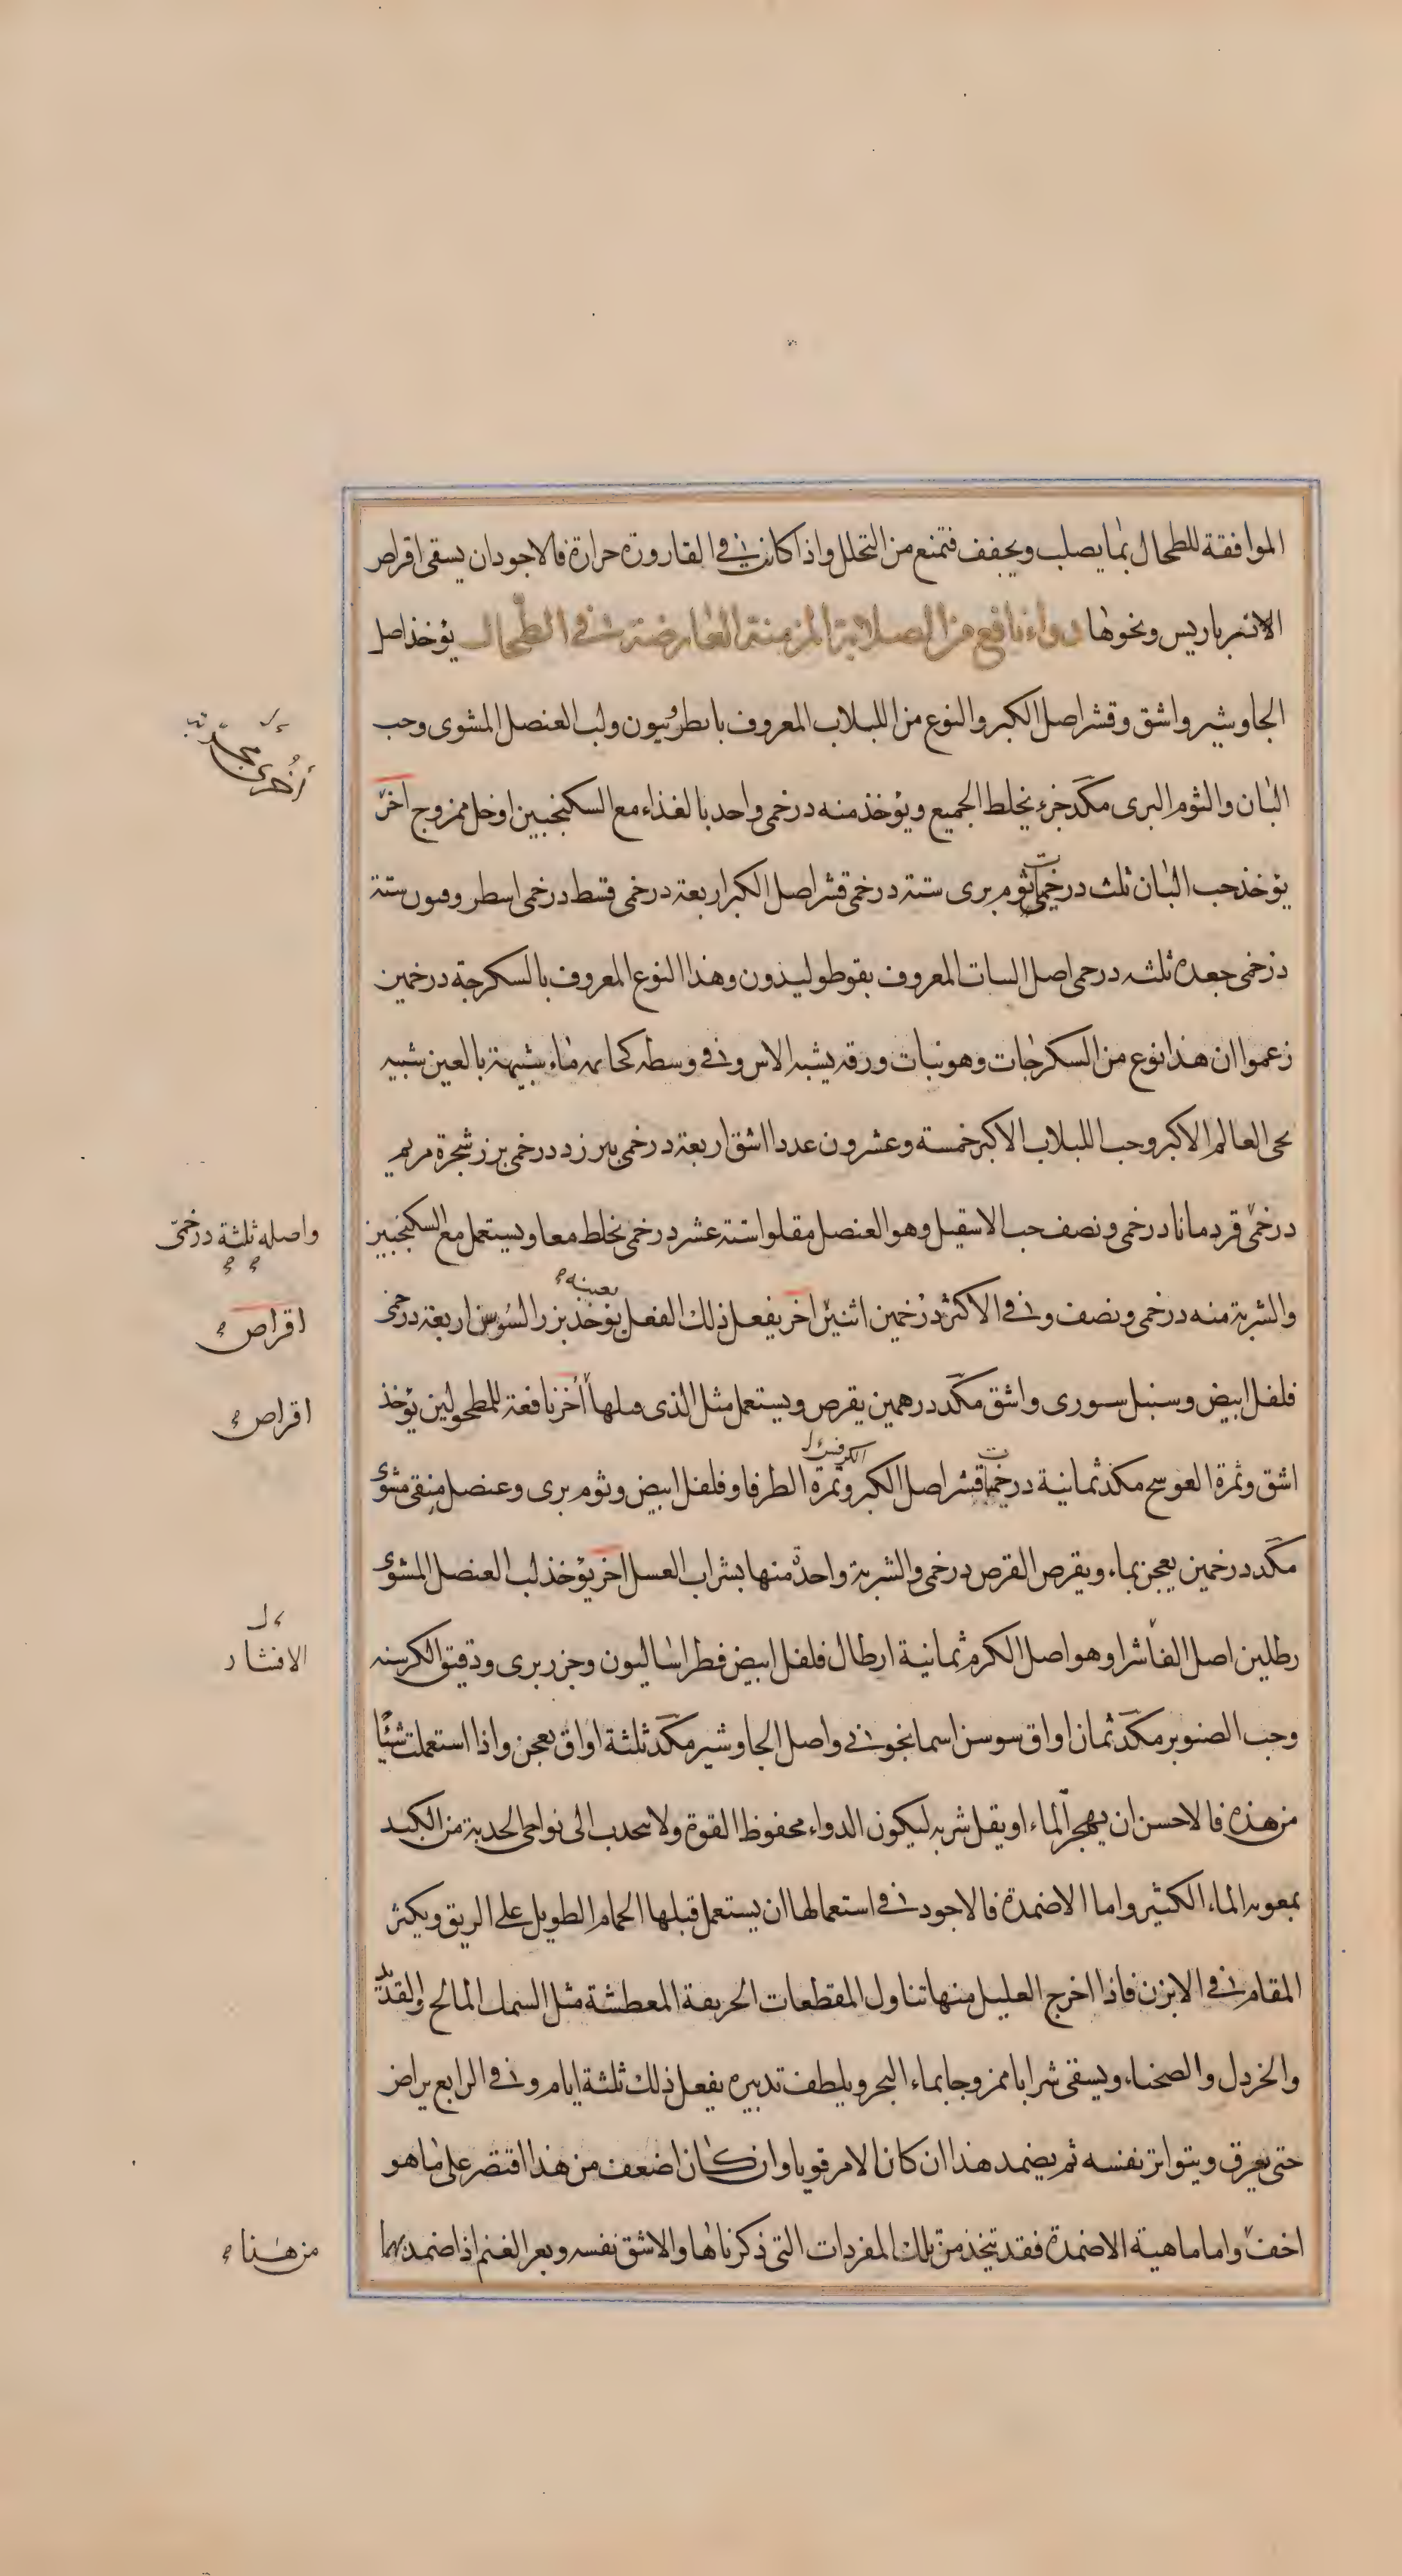 الموافقة للطحال بما يصلب ويجفف فتمنع من التحلل واذا كانت في القارورة حرارة فالاجود ان يسقى اقراص
الانبرباريس ونحوها دواء نافع من الصلابة المزمنة العارضة في الطحال يؤخذ اصل
الجاوشير واشق وقشر اصل الكبر والنوع من اللبلاب المعروف بانطرنيون ولب العنصل المشوى وحب
البان والثوم البرى مكد جزء يخلط الجميع ويؤخذ منه درخمى واحد بالغذاء مع السكنجبين او خل ممزوج اخر
أخرى مجربة
يؤخذ حب البان ثلث درخميات ثوم برى ستة درخمى قشر اصل الكبر اربعة درخمى قسط درخمى اسطر وفيون ستة
درخمى جعده ثلثه درحمى اصل السات المعروف بقوطوليدون وهذا النوع المعروف بالسكرجة درخمين
زعموا ان هذا نوع من السكرجات وهو نبات ورقه يشبه الاس وفي وسطه كحامه ماء شبيهة بالعين شبيه
بحى العالم الاكبر وحب اللبلاب الاكبر خمسة وعشرون عددا اشق اربعة درخمى بيرزد درخمى بزر شجرة مريم
درخمى قردمانا درخمى ونصف حب الاسقيل وهو العنصل مقلوا ستة عشر درخمى يخلط معا ويستعمل مع السكنجبين
واصله ثلثة درخمى
والشربة منه درخمى ونصف وفي الاكثر درخمين اثنين اخر يفعل ذلك الفعل بعينه يؤخذ بزر السوسن اربعة درحمى
اقراص
فلفل ابيض وسنبل سورى واشق مكد درهمين يقرص ويستعمل مثل الذى قبلها أخر نافعة للمطحولين يؤخذ
اقراص
اشق وثمرة العوسج مكد ثمانية درخميات قشر اصل الكبر وثمرة الطرفا وفلفل ابيض وثوم برى وعنصل منقى مشوى
مكد درخمين يعجن بماء ويقرص القرص درخمى والشربة واحدة منها بشراب العسل اخر يؤخذ لب العنصل المشوى
رطلين اصل الفاشرا وهو اصل الكرم ثمانية ارطال فلفل ابيض فطراساليون وجزر برى ودقيق الكرسنه
الافشار
وحب الصنوبر مكد ثمان اواق سوسن اسمانجونى واصل الجاوشير مكد ثلثة اواق يعجن واذا استعملت شيئا
من هذه فالاحسن ان يهجر الماء او يقل شربه ليكون الدواء محفوظ القوة ولا ينجذب الى نواحى الحدبة من الكبد
بمعونه الماء الكثير واما الاضمدة فالاجود في استعمالها ان يستعمل قبلها الحمام الطويل على الريق ويكثر
المقام في الابزن فاذا اخرج العليل منها تناول المقطعات الحريفة المعطشة مثل السمك المالح والقديد
والخردل والصحناء ويسقى شرابا ممزوجا بماء البحر ويلطف تدبيره يفعل ذلك ثلثة ايام وفي الرابع يراض
حتى يعرق ويتواتر نفسه ثم يضمد هذا ان كان الامر قويا وان كان اضعف من هذا اقتصر على ما هو
اخف واما ماهية الاضمدة فقد يتخذ من تلك المفردات التى ذكرناها والاشق نفسه وبعر الغنم اذا ضمد بهما
من هنا